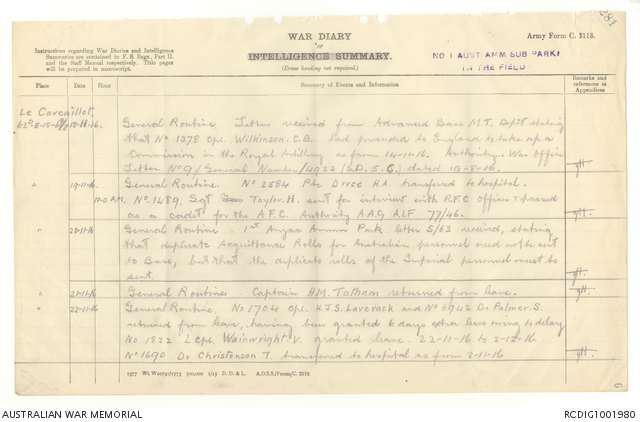 281
WAR DIARY
or
INTELLIGENCE SUMMARY.
(Erase heading not required.)
Army Form C. 2118.
Instructions regarding War Diaries and Intelligence
Summaries are contained in F. S. Regs., Part II.
and the Staff Manual respectively. Title pages
will be prepared in manuscript.
NO 1 AUST. AMM SUB PARK
IN THE FIELD
Place Date Hour Summary of Events and Information Remarks and references to Appendices
Le Cavcaillot,
18-11-16. General Routine. Letter received from Advanced Base M.T. Dept stating
that No 1378 Cpl. Wilkinson. C.B. had proceeded to England to take up a
Commission in the Royal Artillery as from 14-11-16. Authority. War Office
Letter No 9/General Number/4922 (S.D.5.C.) dated 19-5-16.
" 19-11-16 General Routine. No 2584 Pte Dyce H.A. transferred to hospital.
No. 1489. Sgt Taylor. H. sent for interview with R.F.C Officer & passed
as a cadet for the A.F.C. Authority A.A.G A.I.F 77/46.
" 20-11-16 General Routine. 1st Anzac Ammn Park letter S/63 received, stating
that duplicate Acquittance Rolls for Australian personnel need not be sent
to Base, but that the duplicate rolls of the Imperial personnel must be
sent.
" 21-11-16 General Routine. Captain H.M. Tolhurst returned from leave.
" 22-11-16 General Routine. No 1704 Cpl. H.J.S. Laverack and No 6942 Dr Palmer. S.
returned from leave, having been granted 6 days extra leave owing to delay
No 1822 L Cpl Wainwright V. granted leave. 22-11-16 to 2-12-16
No 1690 Dr Christenson T. transferred to hospital as from 2-11-16
D. D. & L. A.D.S.S./Forms/C. 2118
AUSTRALIAN WAR MEMORIAL
RCDIG1001980